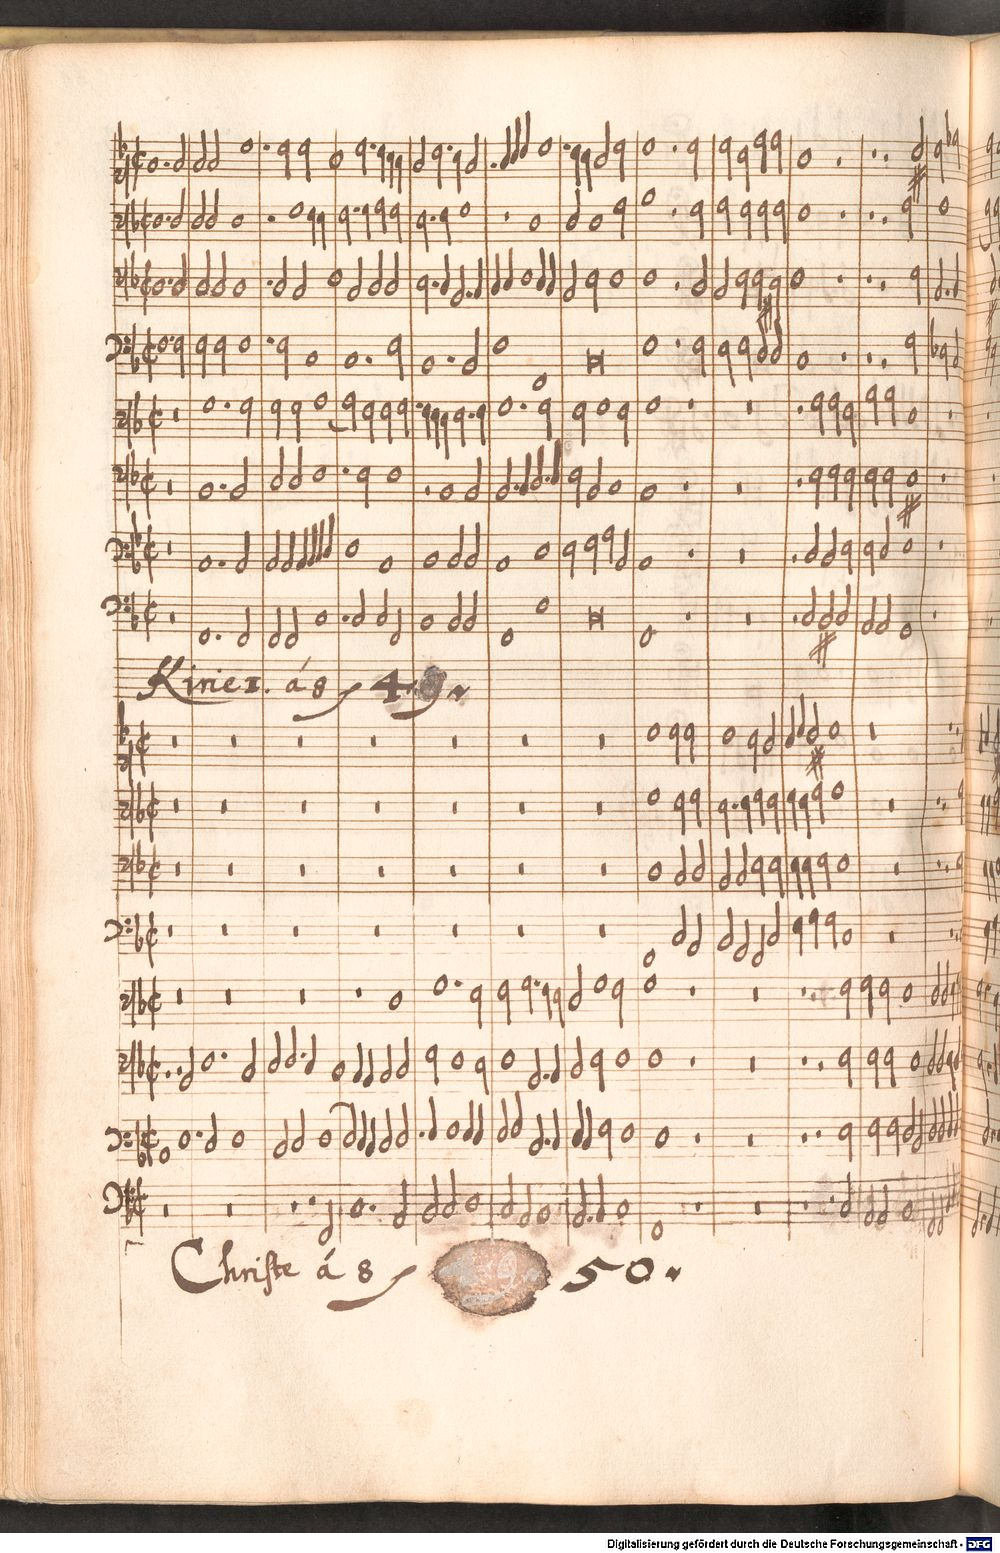 Kirie 1. á 8 49.
Christe á 8 50.
Digitalisierung gefördert durch die Deutsche Forschungsgemeinschaft - DFG